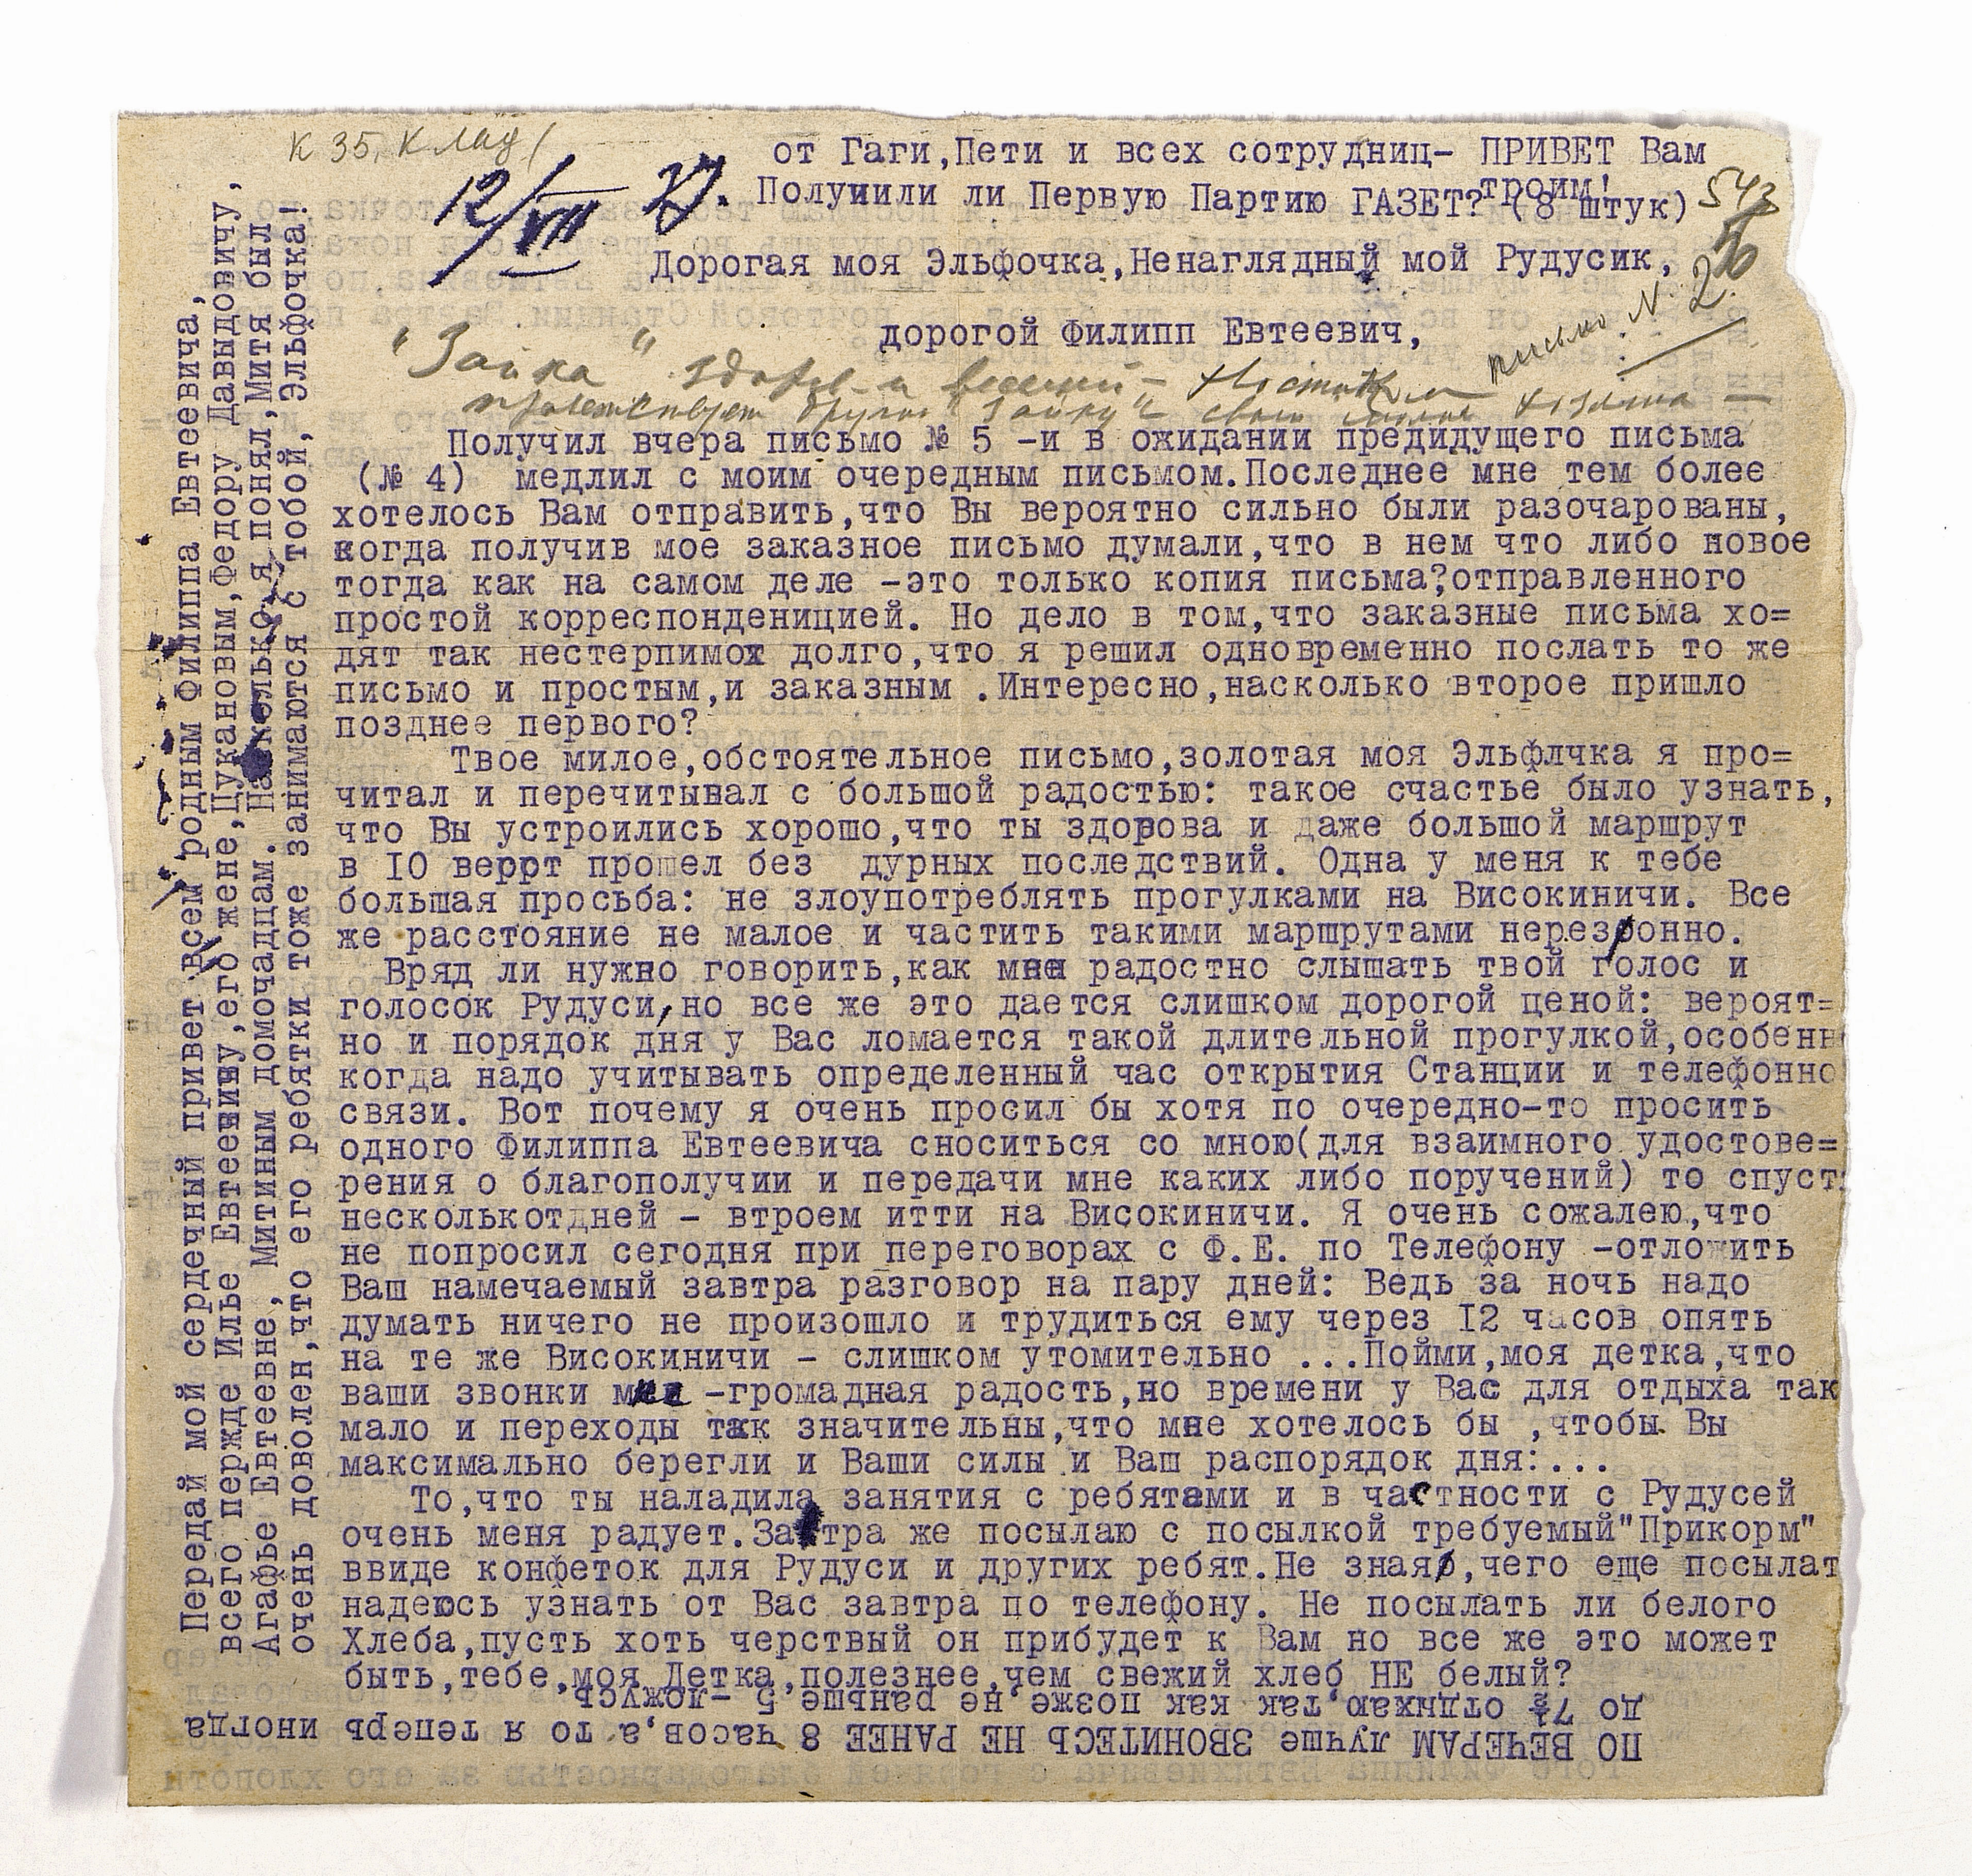 К 35, К
12/VII 27.
от Гаги,Пети и всех сотрудниц- ПРИВЕТ Вам
троим!
Получили ли Первую Партию ГАЗЕТ? (8 штук)
543
56
Дорогая моя Эльфочка,Ненаглядный мой Рудусик,
письмо N. 2.
дорогой Филипп Евтеевич,
"Зайка" здоров и веселый-
приветствует другую "Зайку"
Получил вчера письмо № 5 -и в ожидании предидущего письма
(№ 4) медлил с моим очередным письмом.Последнее мне тем более
хотелось Вам отправить,что Вы вероятно сильно были разочарованы,
когда получив мое заказное письмо думали,что в нем что либо новое
тогда как на самом деле -это только копия письма?отправленного
простой корреспонденицией. Но дело в том,что заказные письма хо=
дят так нестерпимох долго,что я решил одновременно послать то же
письмо и простым,и заказным .Интересно,насколько второе пришло
позднее первого?
Твое милое,обстоятельное письмо,золотая моя Эльфлчка я про=
читал и перечитывал с большой радостью: такое счастье было узнать,
что Вы устроились хорошо,что ты здорова и даже большой маршрут
в IO веррт прошел без дурных последствий. Одна у меня к тебе
большая просьба: не злоупотреблять прогулками на Високиничи. Все
же расстояние не малое и частить такими маршрутами нерезонно.
Вряд ли нужно говорить,как мне радостно слышать твой голос и
голосок Рудуси,но все же это дается слишком дорогой ценой: вероят=
но и порядок дня у Вас ломается такой длительной прогулкой,особенн
когда надо учитывать определенный час открытия Станции и телефонно
связи. Вот почему я очень просил бы хотя по очередно-то просить
одного Филиппа Евтеевича сноситься со мною(для взаимного удостове=
рения о благополучии и передачи мне каких либо поручений) то спуст
несколькотдней - втроем итти на Високиничи. Я очень сожалею,что
не попросил сегодня при переговорах с Ф.Е. по Телефону -отложить
Ваш намечаемый завтра разговор на пару дней: Ведь за ночь надо
думать ничего не произошло и трудиться ему через I2 часов опять
на те же Високиничи - слишком утомительно ...Пойми,моя детка,что
ваши звонки мне -громадная радость,но времени у Вас для отдыха так
мало и переходы так значительны,что мне хотелось бы ,чтобы Вы
максимально берегли и Ваши силы и Ваш распорядок дня:...
То,что ты наладила занятия с ребятами и в частности с Рудусей
очень меня радует.Завтра же посылаю с посылкой требуемый"Прикорм"
ввиде конфеток для Рудуси и других ребят.Не зная,чего еще посылат
надеюсь узнать от Вас завтра по телефону. Не посылать ли белого
Хлеба,пусть хоть черствый он прибудет к Вам но все же это может
быть,тебе,моя Детка,полезнее,чем свежий хлеб НЕ белый?
ПО ВЕЧЕРАМ лучше ЗВОНИТЕСЬ НЕ РАНЕЕ 8 часов,а то я теперь иногда
до 7½ отдыхаю,так как позже,не раньше 5 -ложусь
Передай мой сердечный привет Всем родным Филиппа Евтеевича,
всего пержде Илье Евтеевичу,его жене,Цукановым,Федору Давыдовичу,
Агафье Евтеевне, Митиным домочадцам. Насколько я понял,Митя был
очень доволен,что его ребятки тоже занимаются с тобой, Эльфочка!